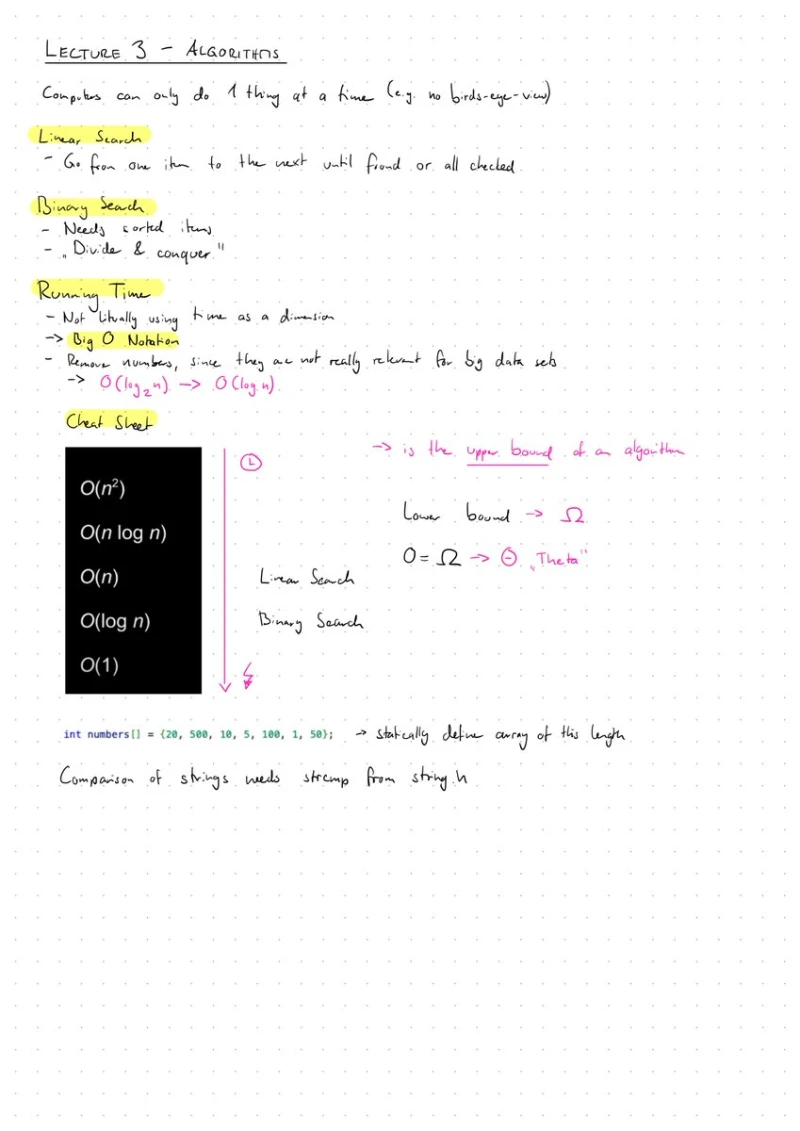 LECTURE 3 - ALGORITHMS
Computers can only do 1 thing at a time (e.g. no birds-eye-view)
Linear Search
- Go from one item to the next until found or all checked
Binary Search
- Needs sorted items
- „Divide & conquer"
Running Time
- Not litually using time as a dimension
-> Big O Notation
- Remove numbers, since they are not really relevant for big data sets
-> O(log₂n) -> O(log n)
Cheat Sheet
-> is the upper bound of an algorithm
O(n²)
Lower bound -> Ω
O(n log n)
O = Ω -> Θ „Theta"
O(n) Linear Search
O(log n) Binary Search
O(1)
int numbers[] = {20, 500, 10, 5, 100, 1, 50}; -> statically define array of this length
Comparison of strings needs strcmp from string.h